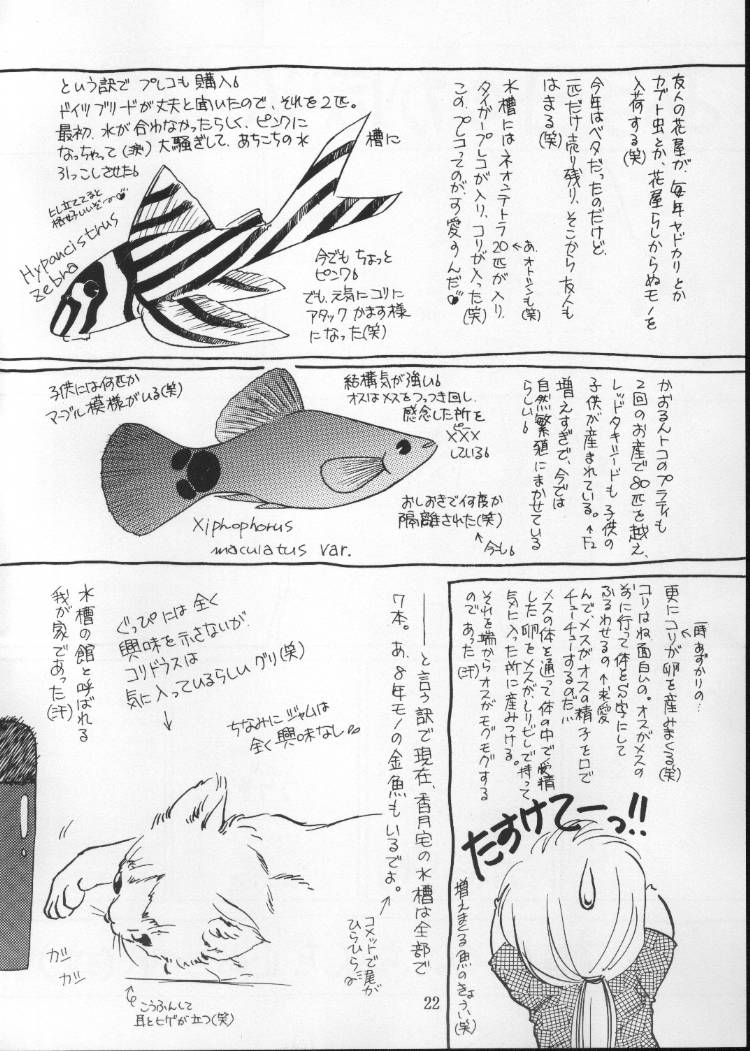 友人の花屋が、毎年ヤドカリとか
カブト虫とか、花屋らしからぬモノを
入荷する(笑)
今年はベタだったのだけど、
一匹だけ売り残り、そこから友人も
はまる(笑)
水槽にはネオンテトラ20匹が入り、
あ、オトシンも(笑)
タイガープレコが入り、コリが入った(笑)
この、プレコってのがす愛すんだ
という訳で プレコも購入。
ドイツブリードが丈夫と聞いたので、それを2匹。
最初、水が合わなかったらしく、ピンクに
なっちゃって(涙)大騒ぎして、あちこちの水槽に
引っこしさせた。
ヒレ立ててると
格好いいぞー
Hypancistrus
zebra
今でもちょっと
ピンク。
でも、元気にコリに
アタックかます様
になった(笑)
かおるんトコのプラティも
2回のお産で80匹を越え、
レッドタキシードも子供の
子供が産まれている。
↑F2
増えすぎで、今では
自然繁殖にまかせている
らしい。
結構気が強い。
オスはメスをつっつき回し、
感念した所を
ピー
×××
している。
子供には何匹か
マーブル模様がいる(笑)
おしおきで何度か
隔離された(笑)
今も。
Xiphophorus
maculatus var.
一時あずかりの…
更にコリが卵を産みまくる(笑)
コリはね面白いの。オスがメスの
前に行って体をS字にして
ふるわせるの ↑求愛
んで、メスがオスの精子を口で
チューチューするのだ!!
メスの体を通って体の中で受精
した卵をメスがしりビレで持って
気に入った所に産みつける。
それを端からオスがモグモグする
のであった(汗)
たすけてーっ!!
増えまくる魚のきょうい(笑)
――と言う訳で現在、香月宅の水槽は全部で
7本。あ、8年モノの金魚もいるでよ。
コメットで尾が
ひらひら
ぐっぴには全く
興味を示さないが、
コリドラスは
気に入っているらしいグリ(笑)
ちなみにジャムは
全く興味なし。
水槽の館と呼ばれる
我が家であった(汗)
ガジ
ガジ
こうふんして
耳とヒゲが立つ(笑)
22